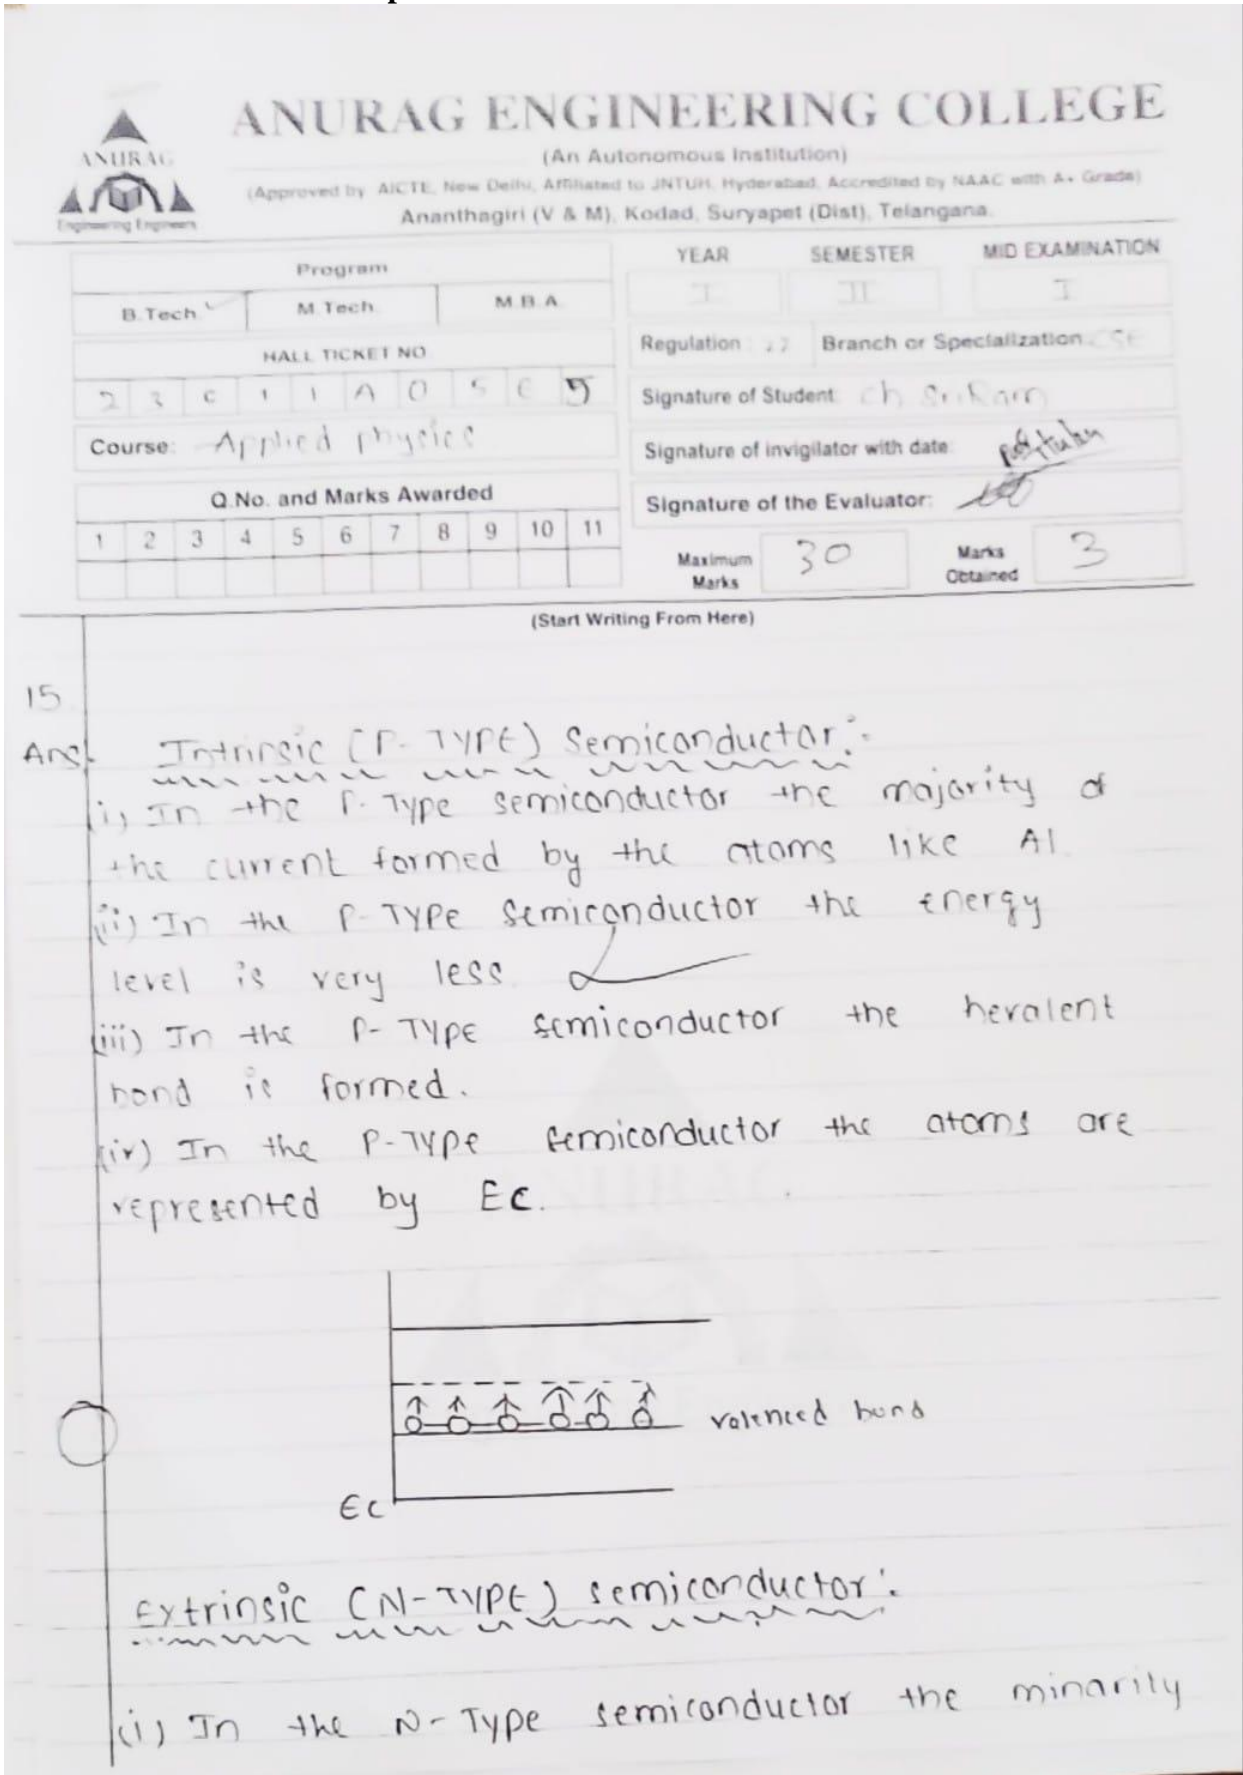 ANURAG ENGINEERING COLLEGE
(An Autonomous Institution)
(Approved by AICTE, New Delhi, Affiliated to JNTUH, Hyderabad, Accredited by NAAC with A+ Grade)
Ananthagiri (V & M), Kodad, Suryapet (Dist), Telangana.
ANURAG
Engineering Engineers
Program
B.Tech M.Tech M.B.A.
HALL TICKET NO
2 3 C 1 1 A 0 5 6 5
Course: Applied physics
Q.No. and Marks Awarded
1 2 3 4 5 6 7 8 9 10 11
YEAR SEMESTER MID EXAMINATION
I II I
Regulation Branch or Specialization CSE
Signature of Student: ch SriRam
Signature of invigilator with date:
Signature of the Evaluator:
Maximum Marks 30 Marks Obtained 3
(Start Writing From Here)
15
Ans Intrinsic (P-TYPE) Semiconductor:-
(i) In the P-Type semiconductor the majority of
the current formed by the atoms like Al
(ii) In the P-TYPE semiconductor the energy
level is very less
(iii) In the P-TYPE semiconductor the hevalent
bond is formed.
(iv) In the P-TYPE semiconductor the atoms are
represented by EC.
valenced bond
EC
Extrinsic (N-TYPE) semiconductor:
(i) In the N-Type semiconductor the minarity